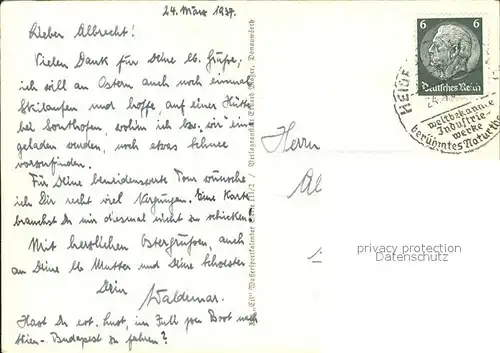 24. März 1937.
Lieber Albrecht!
Vielen Dank für Deine lb. Grüße,
ich will an Ostern auch noch einmal
Skilaufen und hoffe, auf einer Hütte
bei Sonthofen, wohin ich bzw. "wir" ein-
geladen wurden, noch etwas Schnee
vorzufinden.
Für Deine beneidenswerte Tour wünsche
ich Dir recht viel Vergnügen. Eine Karte
brauchst Du mir diesmal nicht zu schicken.
Mit herzlichen Ostergrüßen, auch
an Deine lb. Mutter und Deine Schwester
Dein
Waldemar.
Hast Du evt. Lust, im Juli per Boot nach
Wien - Budapest zu fahren?
Herrn
Al
6 6
Deutsches Reich
HEIDE
24.
weltbekannte
Industrie-
werke
berühmtes Naturthe
privacy protection
Datenschutz